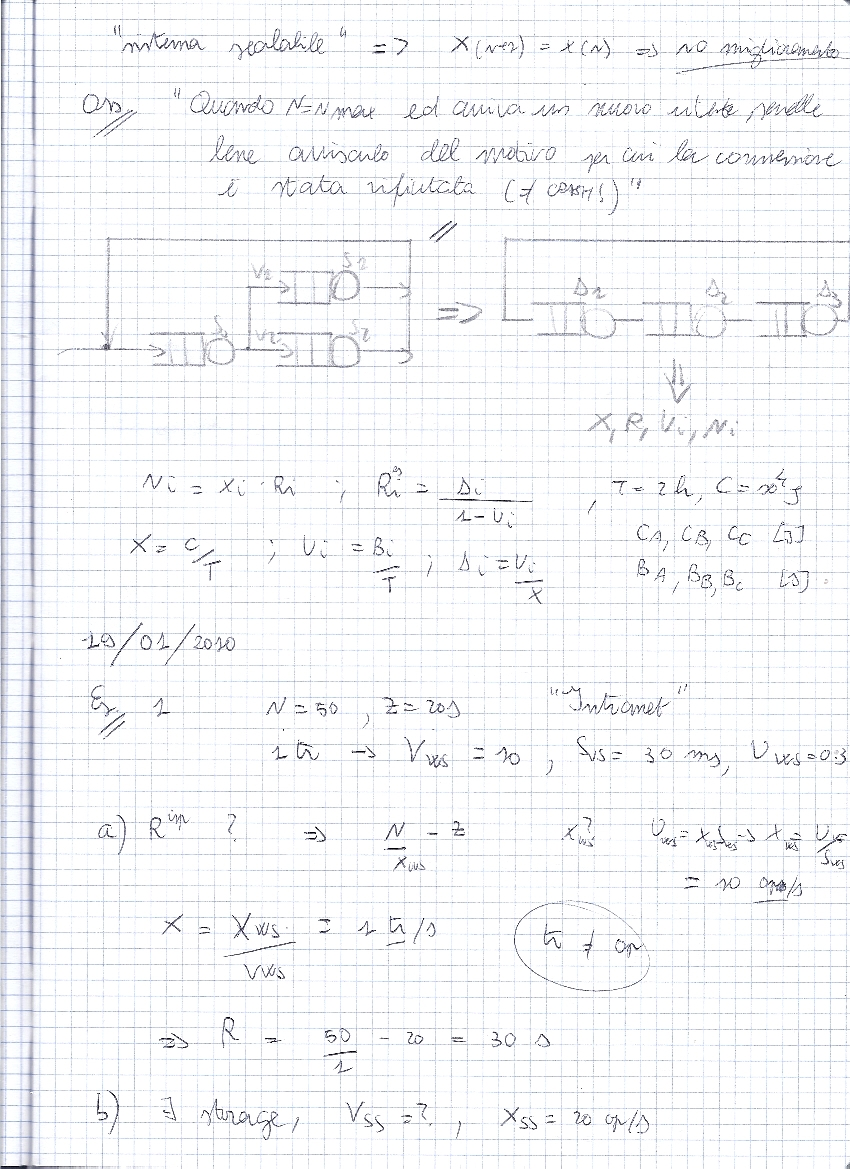 "sistema scalabile" => X(N+1) = X(N) => NO miglioramento
Oss. "Quando N=Nmax ed arriva un nuovo utente, sarebbe
bene avvisarlo del motivo per cui la connessione
è stata rifiutata (≠ CRASH!)"
V1 S1 => D1 D2 D3
S V2 S2
X, R, Ui, Ni
Ni = Xi · Ri ; Ri = Di / (1-Ui) , T = 2h, C = 10⁴
X = C/T ; Ui = Bi/T ; Di = Ui/X CA, CB, CC
BA, BB, BC [s]
19/01/2010
Es. 1 N = 50 , Z = 20s "Intranet"
1 tr → Vws = 10 , Sws = 30 ms, Uws = 0.3
a) R ? => N/Xws - Z Xws? Uws = Xws Sws → Xws = Uws/Sws
= 10 op/s
X = Xws/Vws = 1 tr/s tr ≠ op
=> R = 50/1 - 20 = 30 s
b) ∃ storage, Vss = ? , Xss = 20 op/s